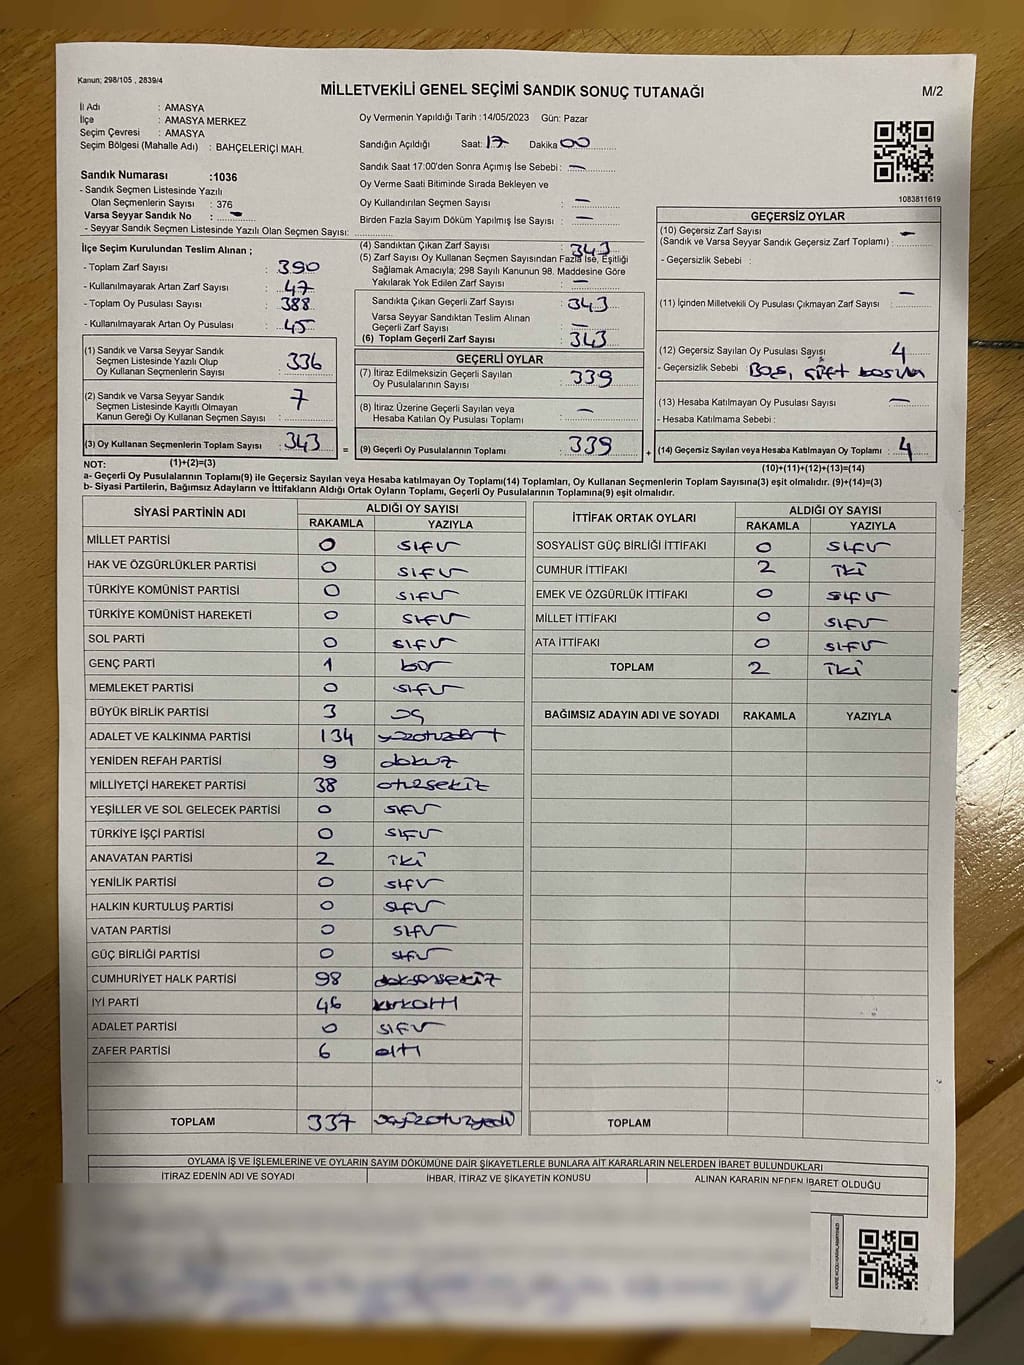 Kanun; 298/105 , 2839/4
MİLLETVEKİLİ GENEL SEÇİMİ SANDIK SONUÇ TUTANAĞI
M/2
İl Adı : AMASYA
İlçe : AMASYA MERKEZ
Seçim Çevresi : AMASYA
Seçim Bölgesi (Mahalle Adı) : BAHÇELERİÇİ MAH.
Oy Vermenin Yapıldığı Tarih :14/05/2023 Gün: Pazar
Sandığın Açıldığı Saat: 17 Dakika 00
Sandık Saat 17:00'den Sonra Açımış İse Sebebi : —
Oy Verme Saati Bitiminde Sırada Bekleyen ve
Oy Kullandırılan Seçmen Sayısı : —
Birden Fazla Sayım Döküm Yapılmış İse Sayısı : —
1083811619
Sandık Numarası :1036
- Sandık Seçmen Listesinde Yazılı
Olan Seçmenlerin Sayısı : 376
Varsa Seyyar Sandık No : —
- Seyyar Sandık Seçmen Listesinde Yazılı Olan Seçmen Sayısı:
İlçe Seçim Kurulundan Teslim Alınan ;
- Toplam Zarf Sayısı : 390
- Kullanılmayarak Artan Zarf Sayısı : 47
- Toplam Oy Pusulası Sayısı : 388
- Kullanılmayarak Artan Oy Pusulası : 45
(1) Sandık ve Varsa Seyyar Sandık
Seçmen Listesinde Yazılı Olup
Oy Kullanan Seçmenlerin Sayısı : 336
(2) Sandık ve Varsa Seyyar Sandık
Seçmen Listesinde Kayıtlı Olmayan
Kanun Gereği Oy Kullanan Seçmen Sayısı : 7
(3) Oy Kullanan Seçmenlerin Toplam Sayısı : 343
(4) Sandıktan Çıkan Zarf Sayısı : 343
(5) Zarf Sayısı Oy Kullanan Seçmen Sayısından Fazla İse, Eşitliği
Sağlamak Amacıyla; 298 Sayılı Kanunun 98. Maddesine Göre
Yakılarak Yok Edilen Zarf Sayısı : —
Sandıkta Çıkan Geçerli Zarf Sayısı : 343
Varsa Seyyar Sandıktan Teslim Alınan
Geçerli Zarf Sayısı : —
(6) Toplam Geçerli Zarf Sayısı : 343
GEÇERLİ OYLAR
(7) İtiraz Edilmeksizin Geçerli Sayılan
Oy Pusulalarının Sayısı : 339
(8) İtiraz Üzerine Geçerli Sayılan veya
Hesaba Katılan Oy Pusulası Toplamı : —
= (9) Geçerli Oy Pusulalarının Toplamı : 339
GEÇERSİZ OYLAR
(10) Geçersiz Zarf Sayısı
(Sandık ve Varsa Seyyar Sandık Geçersiz Zarf Toplamı) : —
- Geçersizlik Sebebi :
(11) İçinden Milletvekili Oy Pusulası Çıkmayan Zarf Sayısı : —
(12) Geçersiz Sayılan Oy Pusulası Sayısı : 4
- Geçersizlik Sebebi : Boş, çift basılan
(13) Hesaba Katılmayan Oy Pusulası Sayısı : —
- Hesaba Katılmama Sebebi :
+ (14) Geçersiz Sayılan veya Hesaba Katılmayan Oy Toplamı : 4
NOT: (1)+(2)=(3)
(10)+(11)+(12)+(13)=(14)
a- Geçerli Oy Pusulalarının Toplamı(9) ile Geçersiz Sayılan veya Hesaba katılmayan Oy Toplamı(14) Toplamları, Oy Kullanan Seçmenlerin Toplam Sayısına(3) eşit olmalıdır. (9)+(14)=(3)
b- Siyasi Partilerin, Bağımsız Adayların ve İttifakların Aldığı Ortak Oyların Toplamı, Geçerli Oy Pusulalarının Toplamına(9) eşit olmalıdır.
SİYASİ PARTİNİN ADI ALDIĞI OY SAYISI
RAKAMLA YAZIYLA
MİLLET PARTİSİ 0 sıfır
HAK VE ÖZGÜRLÜKLER PARTİSİ 0 sıfır
TÜRKİYE KOMÜNİST PARTİSİ 0 sıfır
TÜRKİYE KOMÜNİST HAREKETİ 0 sıfır
SOL PARTİ 0 sıfır
GENÇ PARTİ 1 bir
MEMLEKET PARTİSİ 0 sıfır
BÜYÜK BİRLİK PARTİSİ 3 üç
ADALET VE KALKINMA PARTİSİ 134 yüzotuzdört
YENİDEN REFAH PARTİSİ 9 dokuz
MİLLİYETÇİ HAREKET PARTİSİ 38 otuzsekiz
YEŞİLLER VE SOL GELECEK PARTİSİ 0 sıfır
TÜRKİYE İŞÇİ PARTİSİ 0 sıfır
ANAVATAN PARTİSİ 2 iki
YENİLİK PARTİSİ 0 sıfır
HALKIN KURTULUŞ PARTİSİ 0 sıfır
VATAN PARTİSİ 0 sıfır
GÜÇ BİRLİĞİ PARTİSİ 0 sıfır
CUMHURİYET HALK PARTİSİ 98 doksansekiz
İYİ PARTİ 46 kırkaltı
ADALET PARTİSİ 0 sıfır
ZAFER PARTİSİ 6 altı
TOPLAM 337 üçyüzotuzyedi
İTTİFAK ORTAK OYLARI ALDIĞI OY SAYISI
RAKAMLA YAZIYLA
SOSYALİST GÜÇ BİRLİĞİ İTTİFAKI 0 sıfır
CUMHUR İTTİFAKI 2 iki
EMEK VE ÖZGÜRLÜK İTTİFAKI 0 sıfır
MİLLET İTTİFAKI 0 sıfır
ATA İTTİFAKI 0 sıfır
TOPLAM 2 iki
BAĞIMSIZ ADAYIN ADI VE SOYADI RAKAMLA YAZIYLA
TOPLAM
OYLAMA İŞ VE İŞLEMLERİNE VE OYLARIN SAYIM DÖKÜMÜNE DAİR ŞİKAYETLERLE BUNLARA AİT KARARLARIN NELERDEN İBARET BULUNDUKLARI
İTİRAZ EDENİN ADI VE SOYADI İHBAR, İTİRAZ VE ŞİKAYETİN KONUSU ALINAN KARARIN NEDEN İBARET OLDUĞU